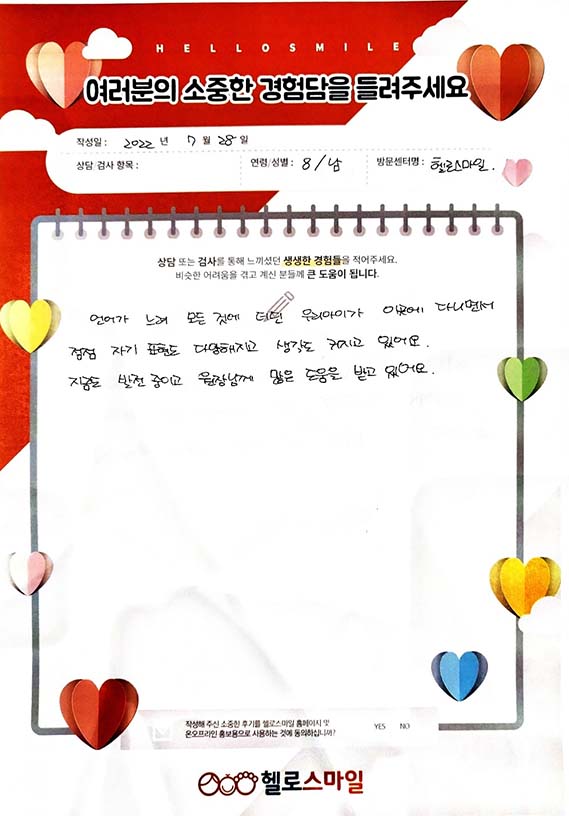 HELLOSMILE
여러분의 소중한 경험담을 들려주세요
작성일 : 2022 년 7 월 28 일
상담/검사 항목 : 연령/성별 : 8 / 남 방문센터명 : 헬로스마일.
상담 또는 검사를 통해 느끼셨던 생생한 경험들을 적어주세요.
비슷한 어려움을 겪고 계신 분들께 큰 도움이 됩니다.
언어가 느려 모든 것에 더딘 우리아이가 이곳에 다니면서
점점 자기 표현도 다양해지고 생각도 커지고 있어요.
지금도 발전 중이고 원장님께 많은 도움을 받고 있어요.
작성해 주신 소중한 후기를 헬로스마일 홈페이지 및
온오프라인 홍보용으로 사용하는 것에 동의하십니까? YES NO
헬로스마일